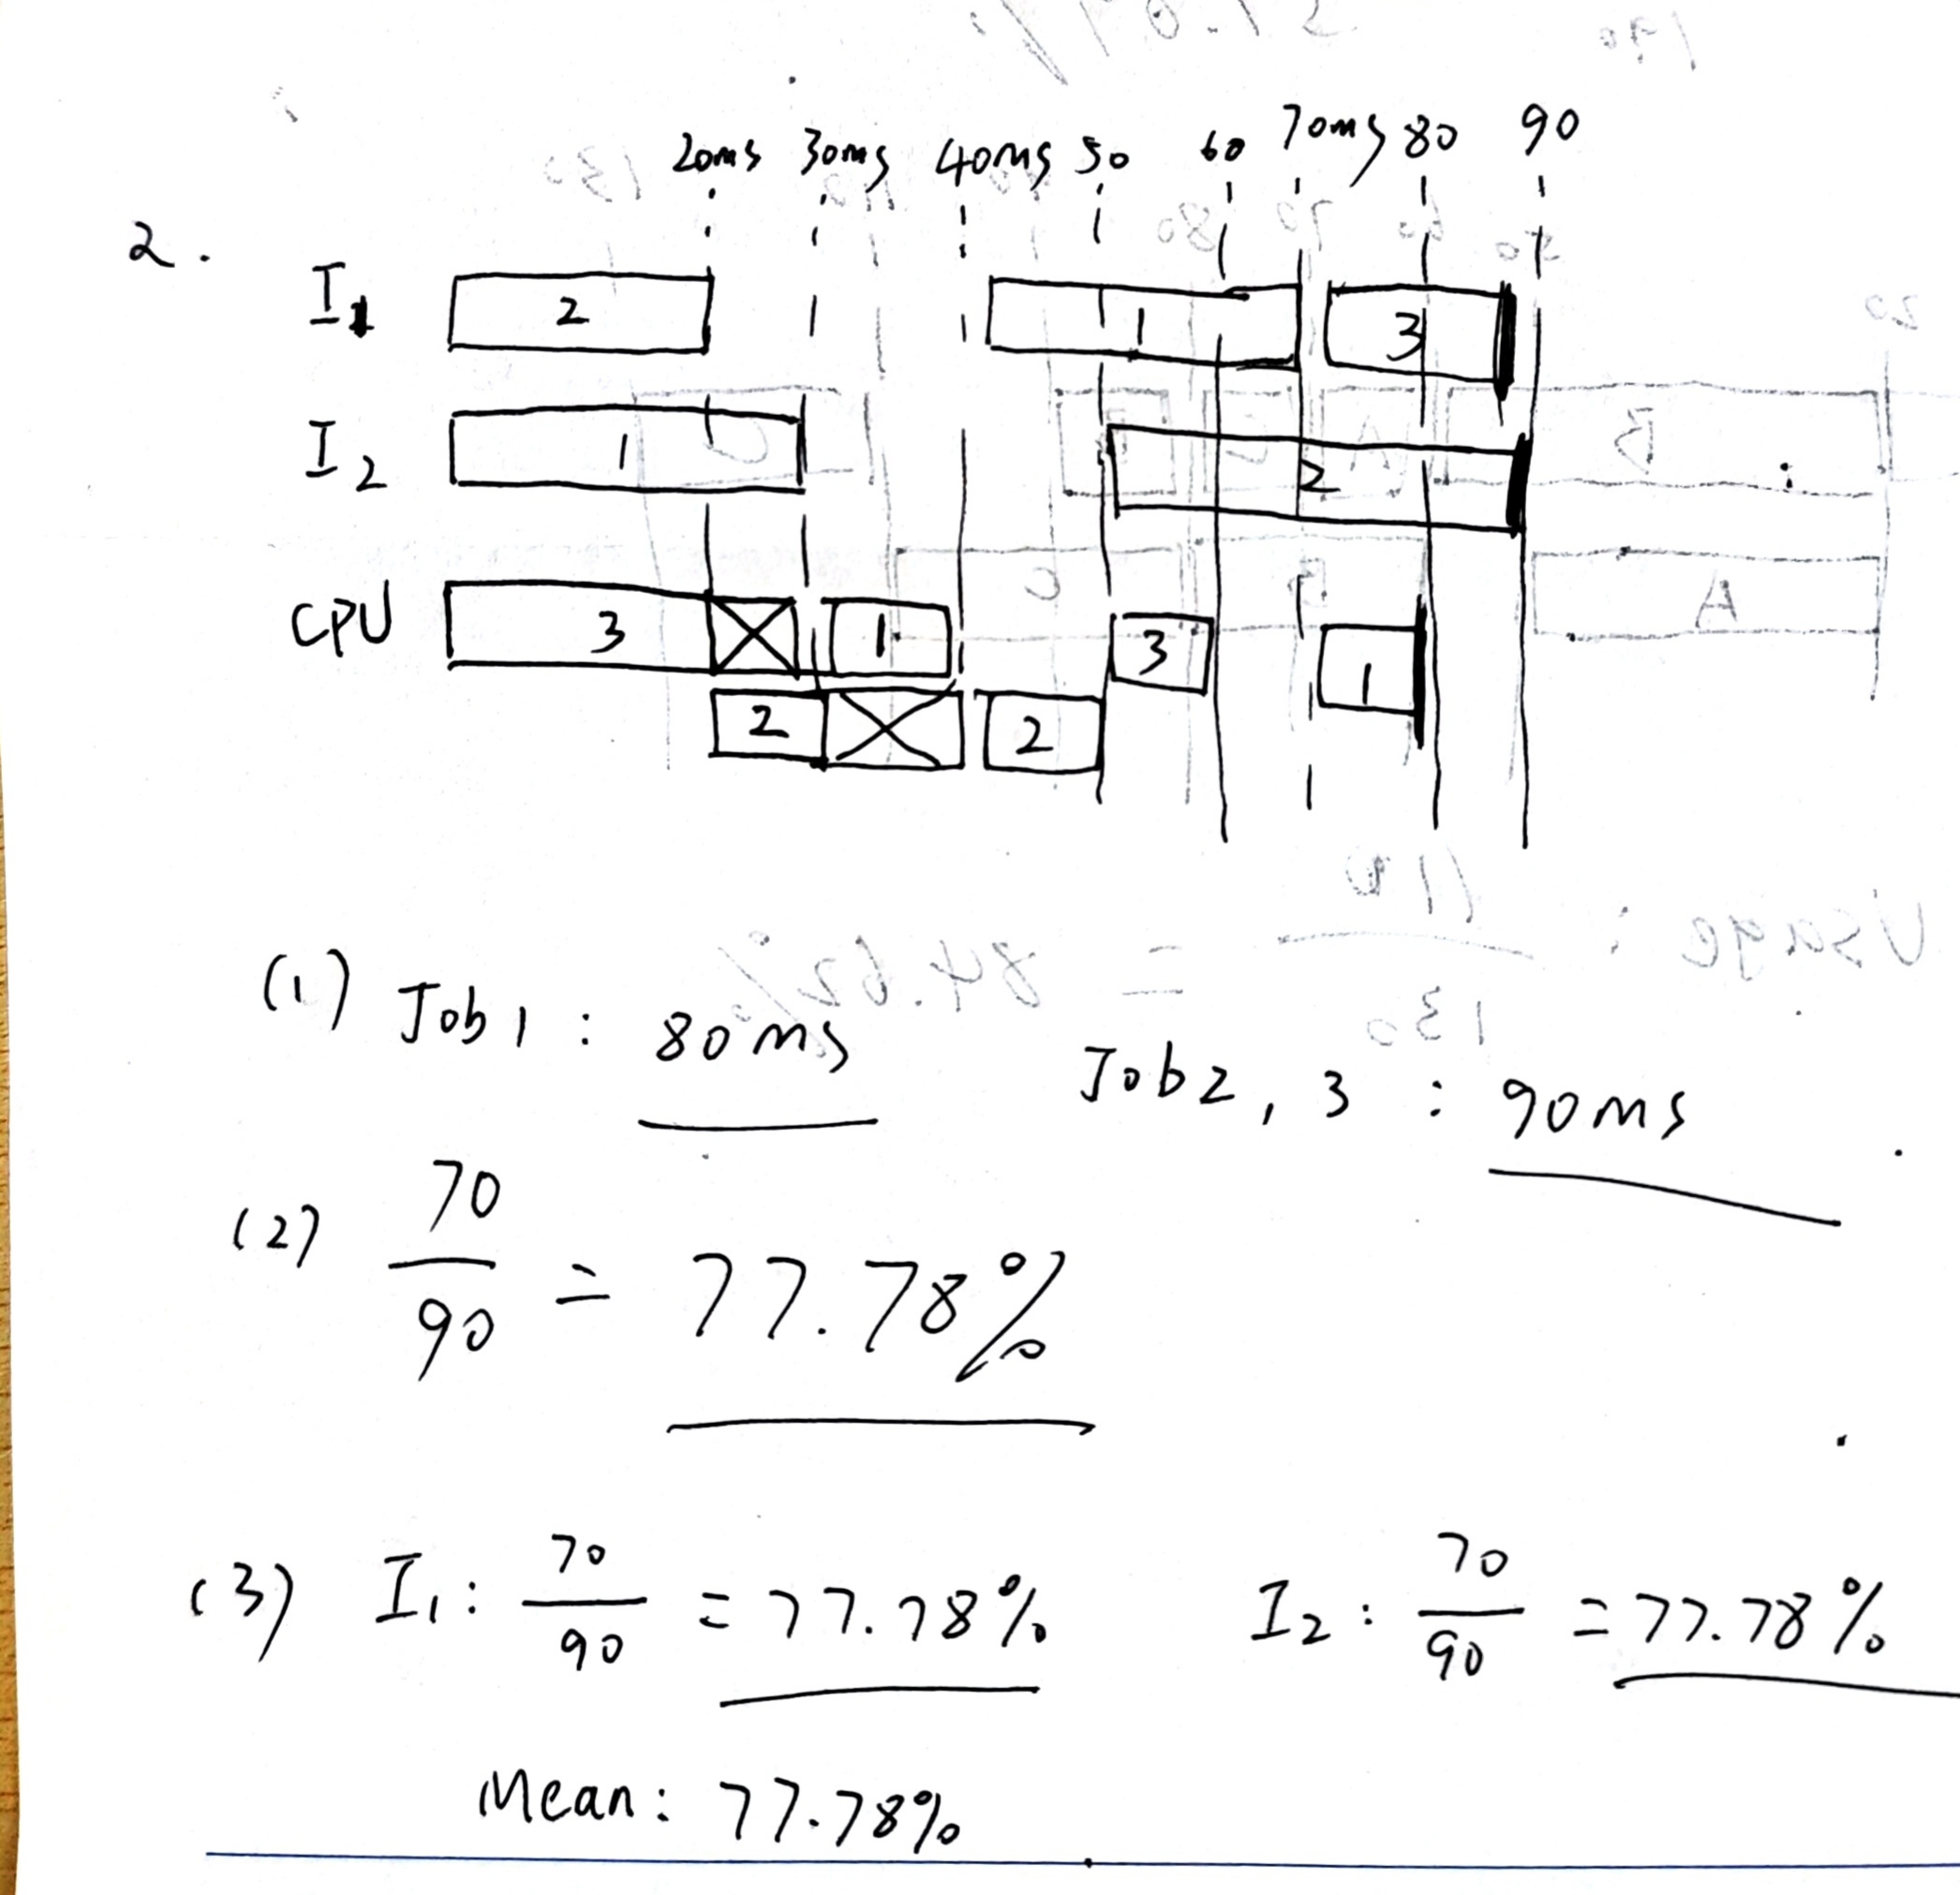 20ms 30ms 40ms 50 60 70ms 80 90
2.
I1 2 1 3
I2 1 2
CPU 3 1 3 1
2 2
(1) Job1 : 80ms Job2, 3 : 90ms
(2) 70/90 = 77.78%
(3) I1: 70/90 = 77.78% I2: 70/90 = 77.78%
Mean: 77.78%